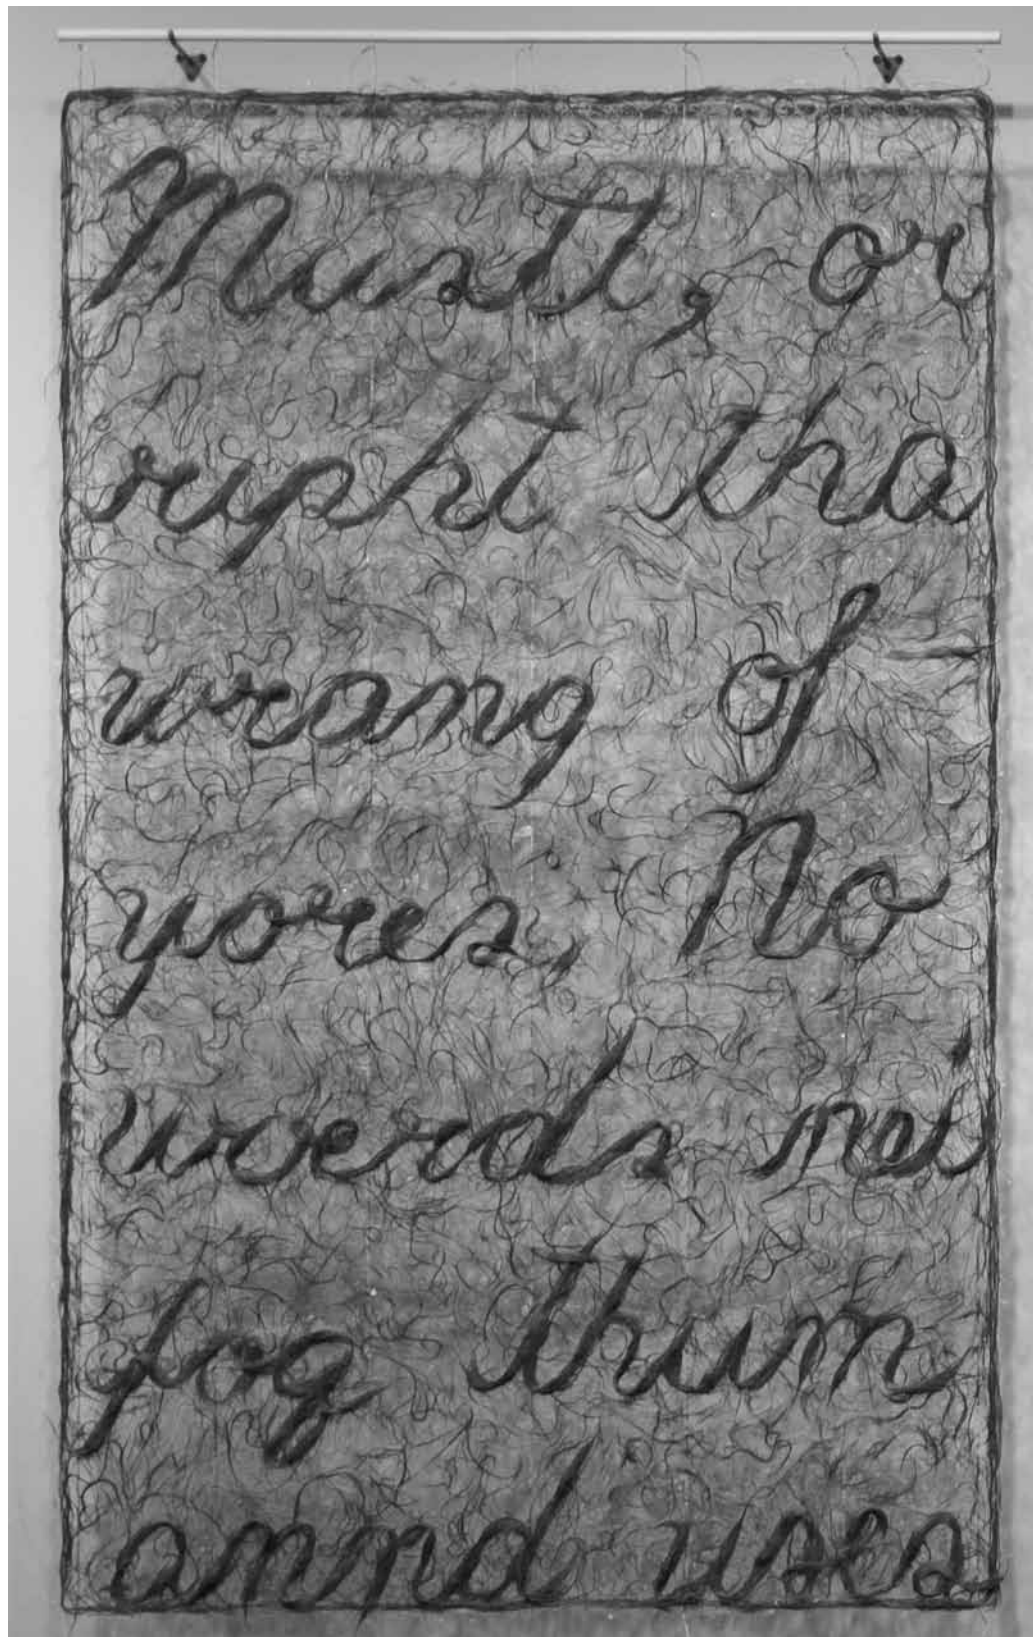 Mustt, or
rypht tha
wrong of
yores, No
woerds nei
fog thum
annd uses